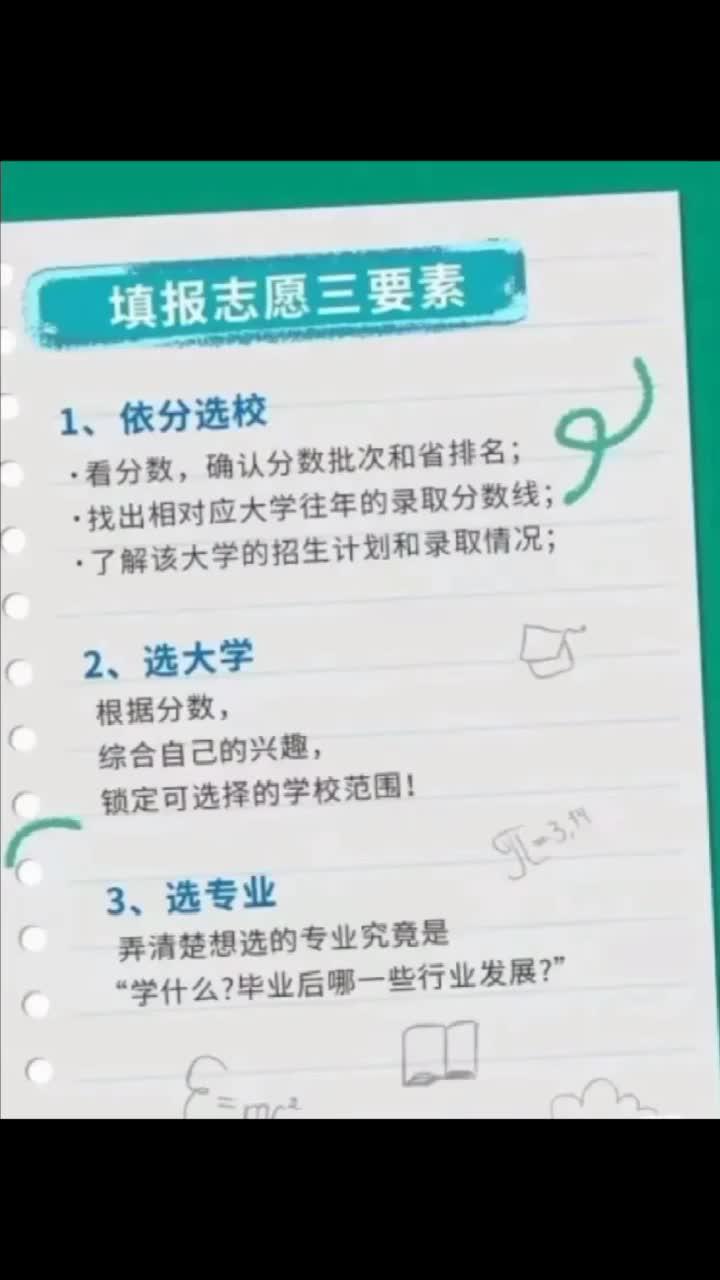 填报志愿三要素
1、依分选校
·看分数，确认分数批次和省排名；
·找出相对应大学往年的录取分数线；
·了解该大学的招生计划和录取情况；
2、选大学
根据分数，
综合自己的兴趣，
锁定可选择的学校范围！
π=3,14
3、选专业
弄清楚想选的专业究竟是
“学什么?毕业后哪一些行业发展?”
E=mc²